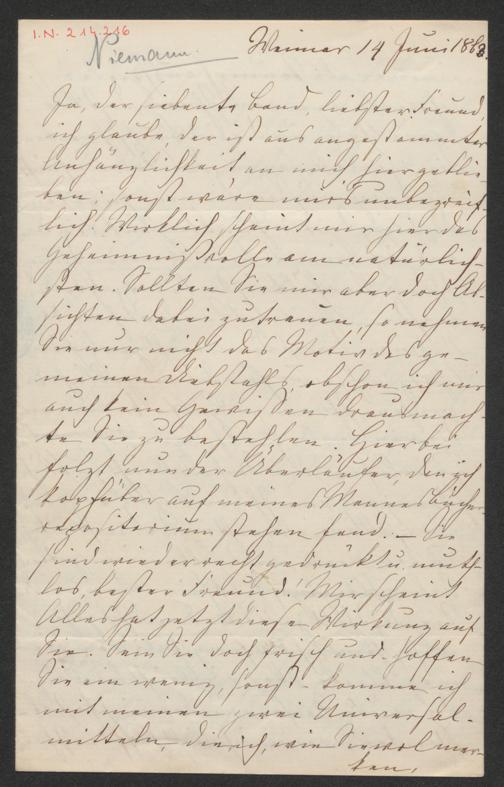 I.N. 214.216
Niemann.
Weimar 14 Juni 1863.
Ja, der siebente Band, liebster Freund,
ich glaube, der ist aus angestammter
Anhänglichkeit an mich hiergeblie-
ben; sonst wäre mirs unbegreif-
lich. Wirklich scheint mir hier das
Geheimnißvolle am natürlich-
sten. Sollten Sie mir aber doch Ab-
sichten dabei zutrauen, so nehmen
Sie nur nicht das Motiv des ge-
meinen Diebstahls, obschon ich mir
auch kein Gewissen draus mach-
te Sie zu bestehlen. Hierbei
folgt nun der Überläufer, den ich
kopfüber auf meines Mannes Bücher-
repositorium stehen fand. – Sie
sind wieder recht gedrückt u. muth-
los, bester Freund! Mir scheint
Alles hat jetzt diese Wirkung auf
Sie. Sein Sie doch frisch und hoffen
Sie ein wenig, sonst komme ich
mit meinen zwei Universal-
mitteln, die ich, wie Sie wol mer-
ken,